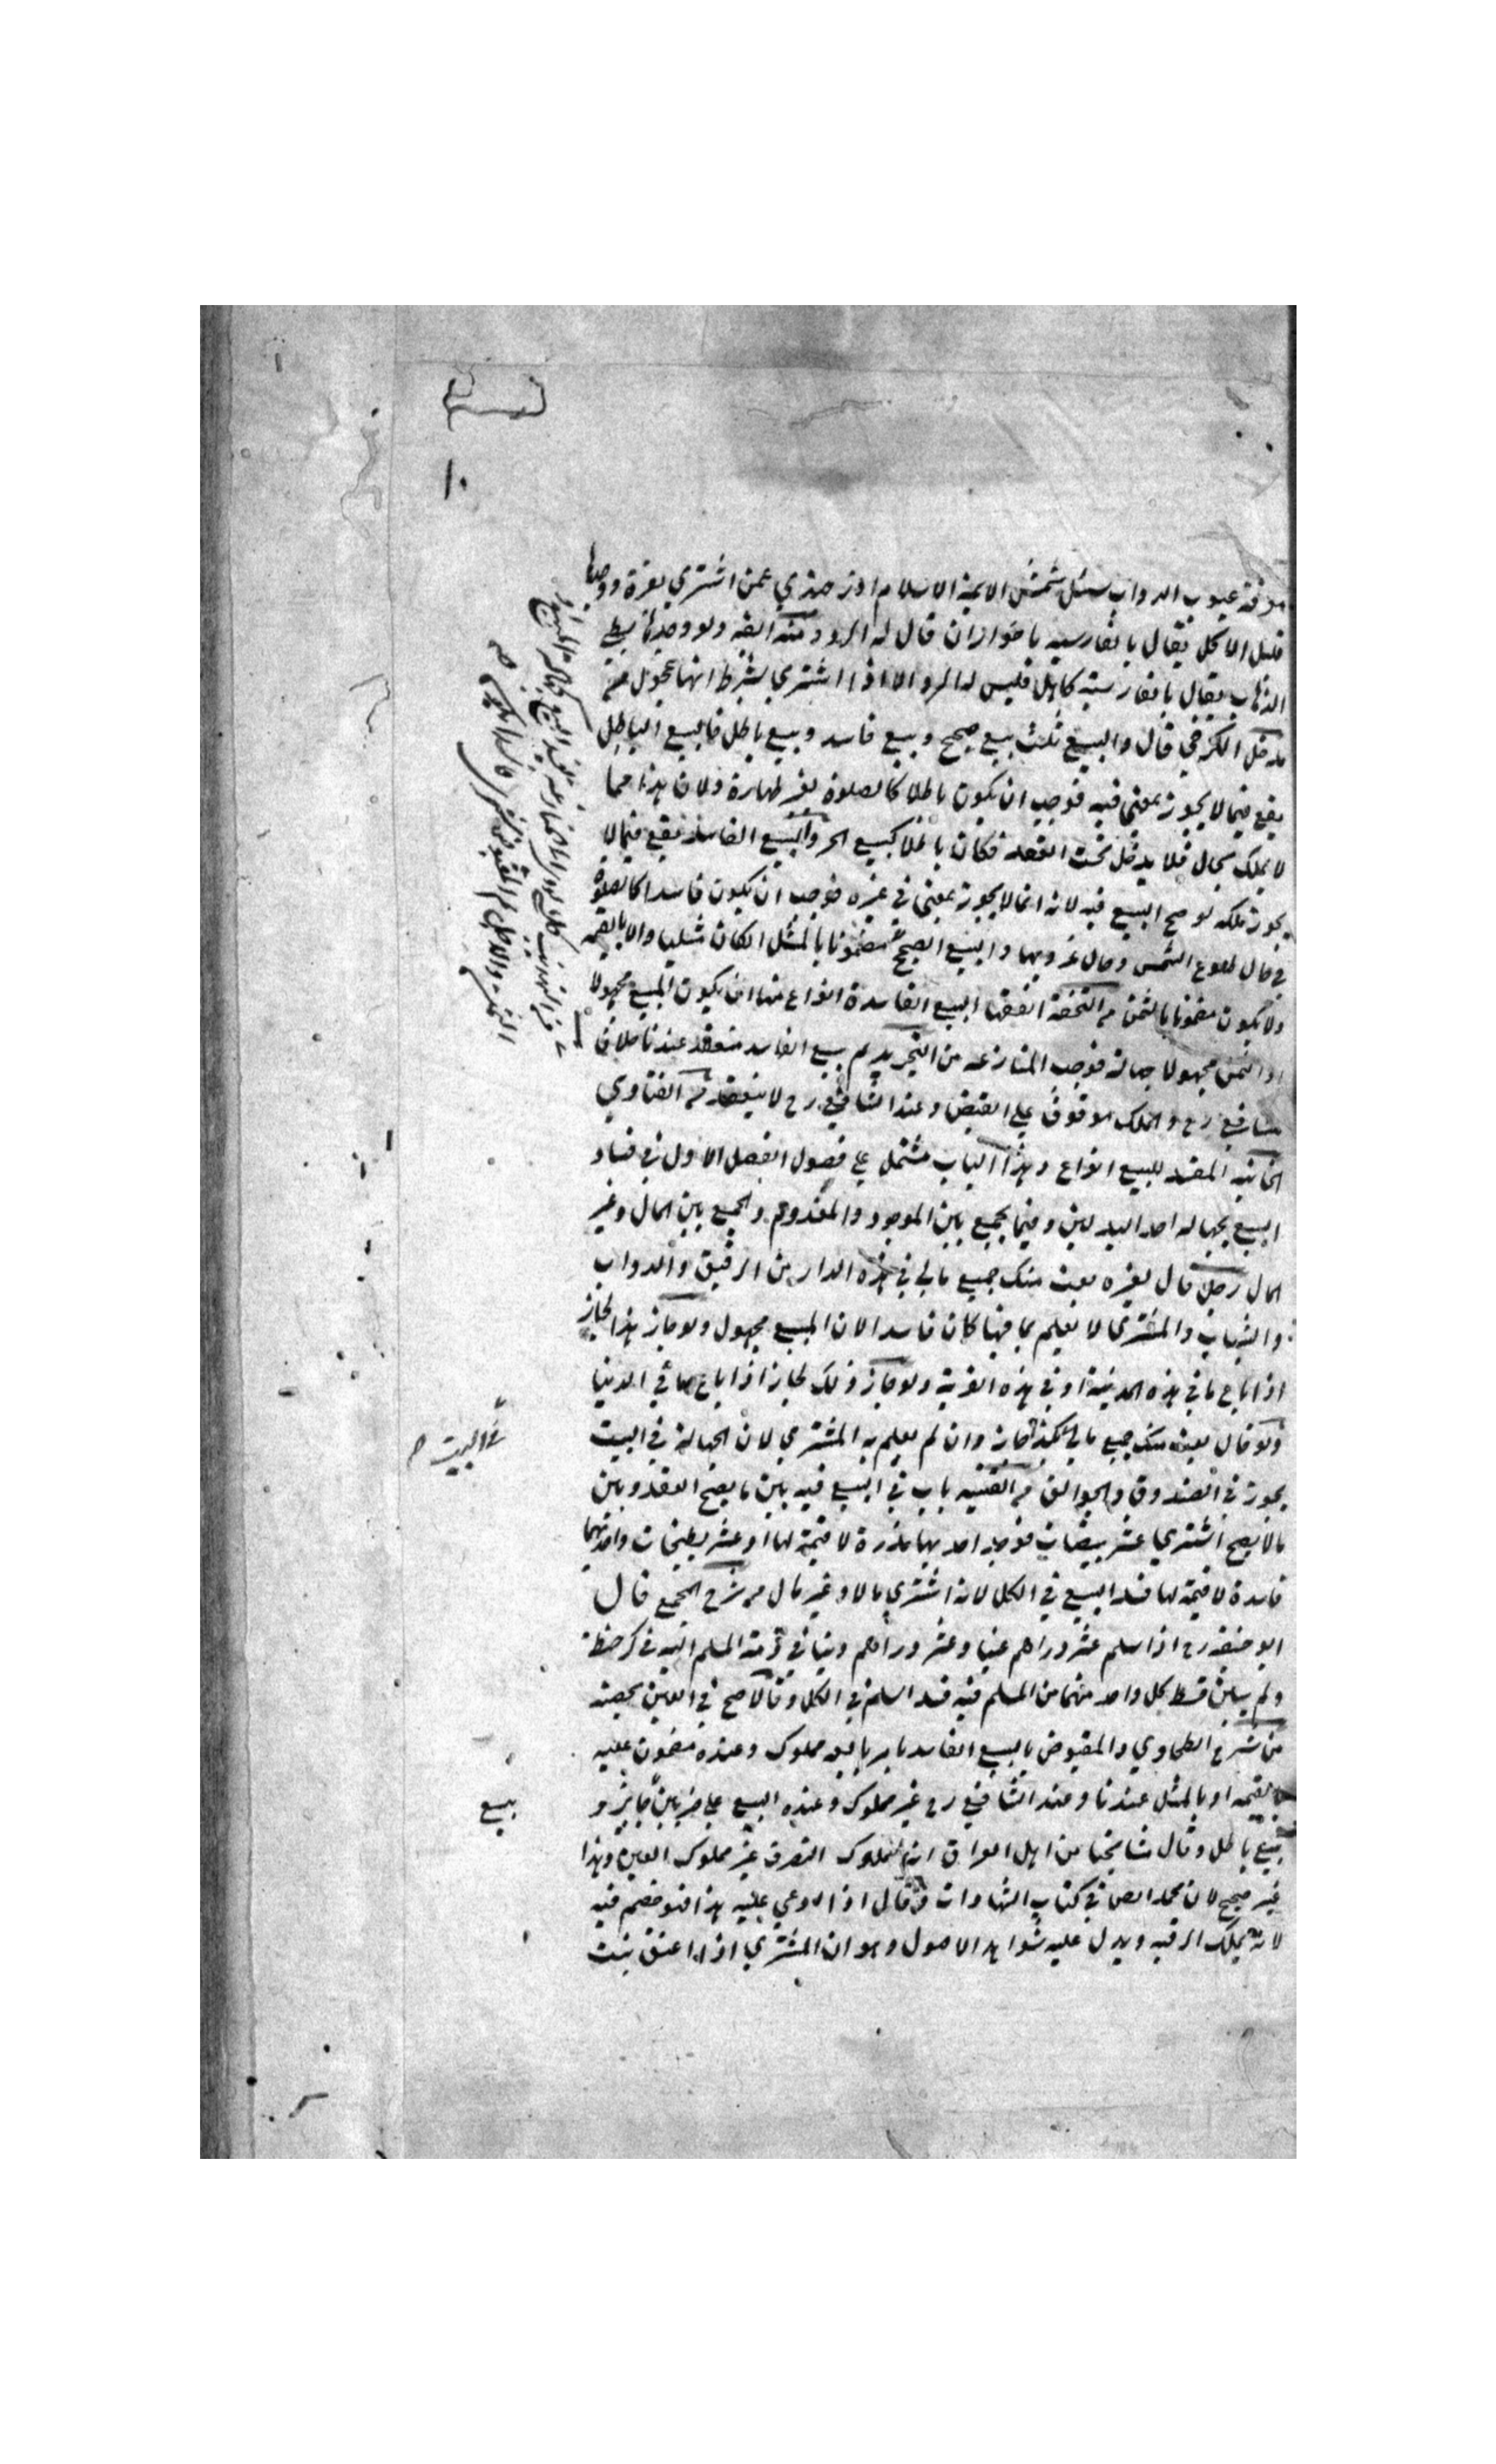 معرفة عيوب الدواب سئل شمس الايمة الاسلام اوزجندي عمن اشتري بقرة ووجدها
قليل الاكل يقال بالفارسيه ناخواران قال له الرد ومنه ايضه ولو وجدها بطي
الذهاب يقال بالفارسية كاهل فليس له الرد الا اذا اشتري بشرط انها عجول من
مدخل الكرخي قال والبيع ثلث بيع صحيح وبيع فاسد وبيع باطل فالبيع الباطل
يقع فيما لا يجوز بمعني فيه فوجب ان يكون باطلا كالصلوة بغير طهارة ولان هذا مما
لا يملك بحال فلا يدخل تحت العقد فكان باطلا كبيع الحر والبيع الفاسد يقع فيما لا
يجوز تملكه لو صح البيع فيه لانه انما لا يجوز بمعني في غيره فوجب ان يكون فاسدا كالصلوة
في حال طلوع الشمس وحال غروبها والبيع الصحيح مضمونا بالمثل ان كان مثليا والا بالقيمه
ولا يكون مضمونا بالثمن م التحفة الفقها البيع الفاسدة انواع منها ان يكون المبيع مجهولا
او الثمن مجهولا جهالة فوجب المنازعه من التجريد م بيع الفاسد منعقد عندنا خلافا
شافعي رح والملك موقوف علي القبض وعند الشافعي رح لا ينعقد م الفتاوي
الخانيه المفسد للبيع انواع وهذا الباب مشتمل علي فصول الفصل الاول في فساد
البيع بجهاله احد البدلين وفيما يجمع بين الموجود والمعدوم والجمع بين المال وغير
المال رجل قال لغيره بعت منك جميع مالي في هذه الدار من الرقيق والدواب
والثياب والمشتري لا يعلم بما فيها كان فاسدا لان المبيع مجهول ولو جاز هذا لجاز
اذا باع ما في هذه المدينة او في هذه القرية ولو جاز ذلك لجاز اذا باع ما في الدنيا
ولو قال بعت منك جميع مالي بكذا جاز وان لم يعلم به المشتري لان الجهالة في البيت
في البيت ص
يجوز في الصندوق والجوالق م القنيه باب في البيع فيه بين ما يصح العقد وبين
مالا يصح اشتري عشر بيضات فوجد احديها مذرة لا قيمة لها او عشر بطيخات واحدتها
فاسدة لا قيمة لها فسد البيع في الكل لانه اشتري مالا وغير مال م شرح المجمع قال
ابو حنيفه رح اذا اسلم عشر دراهم عينا وعشر دراهم دينا في ذمة المسلم اليه في كر حنطة
ولم يبين قسط كل واحد منهما من المسلم فيه فسد السلم في الكل وقالا صح في العين بحصته
من شرح الطحاوي والمقبوض بالبيع الفاسد بامر بايعه مملوك وعنده مضمون عليه
بالقيمه او بالمثل عندنا وعند الشافعي رح غير مملوك وعنده البيع علي ضربين جايز و
بيع
بيع باطل وقال مشايخنا من اهل العراق انه مملوك التصرف غير مملوك العين وهذا
غير صحيح لان محمد انص في كتاب الشهادات وقال اذا ادعي عليه هذا فهو خصم فيه
لانه يملك الرقبه ويدل عليه شواهد الاصول وهو ان المشتري اذا اعتق يثبت